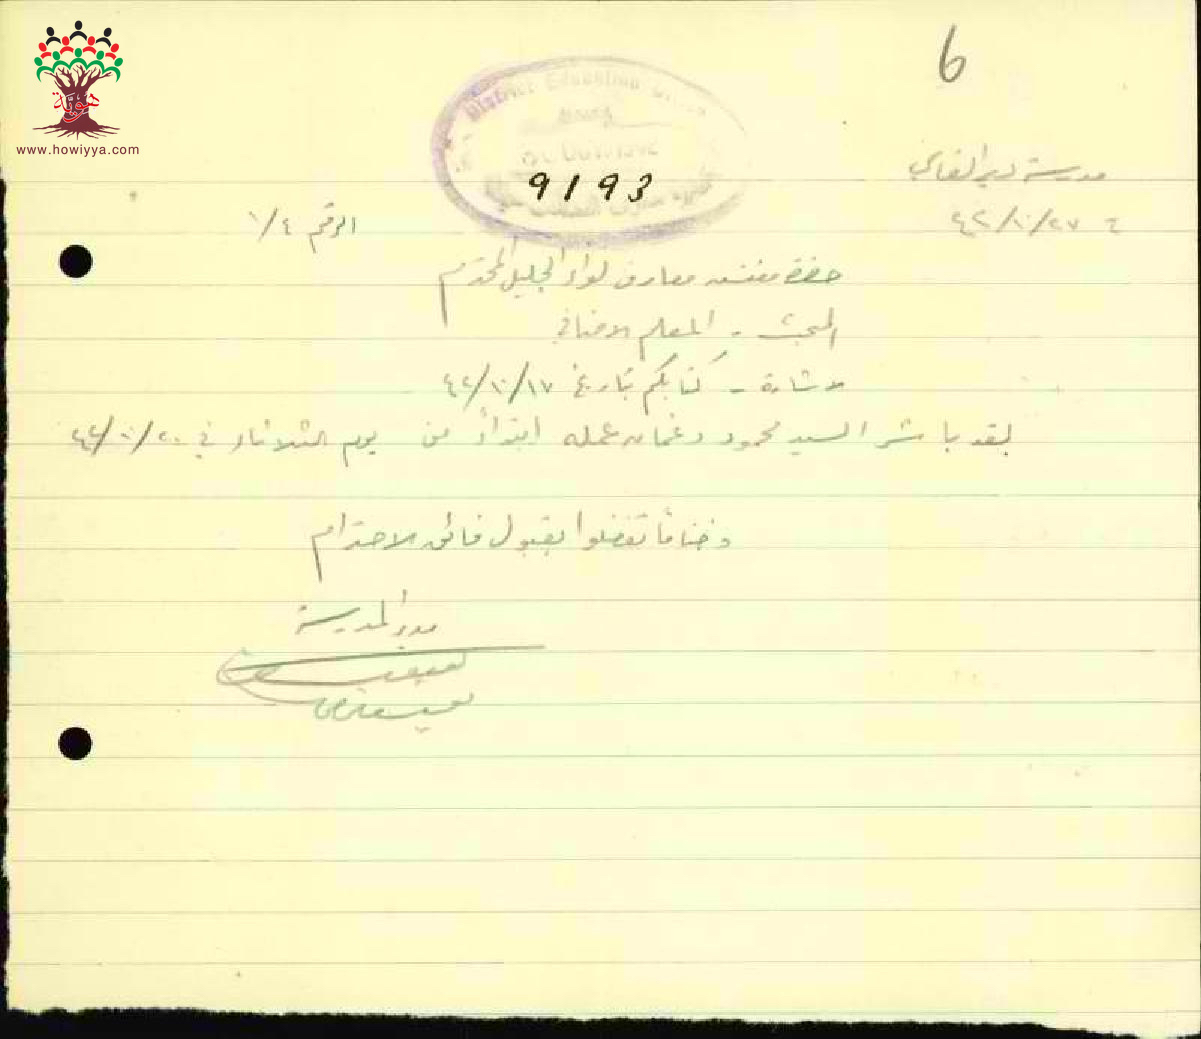 6
هوية
www.howiyya.com
District Education Office
9193
مدرسة دير القاسي
٤٢/١٠/٢٧
الرقم ١/٤
حضرة مفتش معارف لواء الجليل المحترم
المبحث - المعلم الاضافي
الاشارة - كتابكم تاريخ ٤٢/١٠/١٧
لقد باشر السيد محمود دغمان عمله ابتداءً من يوم الثلاثاء في ٤٢/١٠/٢٠
وختاماً تفضلوا بقبول فائق الاحترام
مدير المدرسة